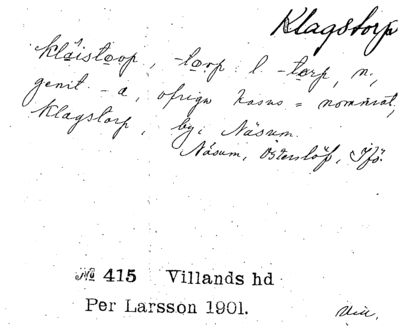 Klagstorp
kláistoop, -torp l. -torp, n,
genit. -a, öfriga kasus = nominat,
Klagstorp, by i Näsum.
Näsum, Österslöf, Ifö.
№ 415 Villands hd
Per Larsson 1901.